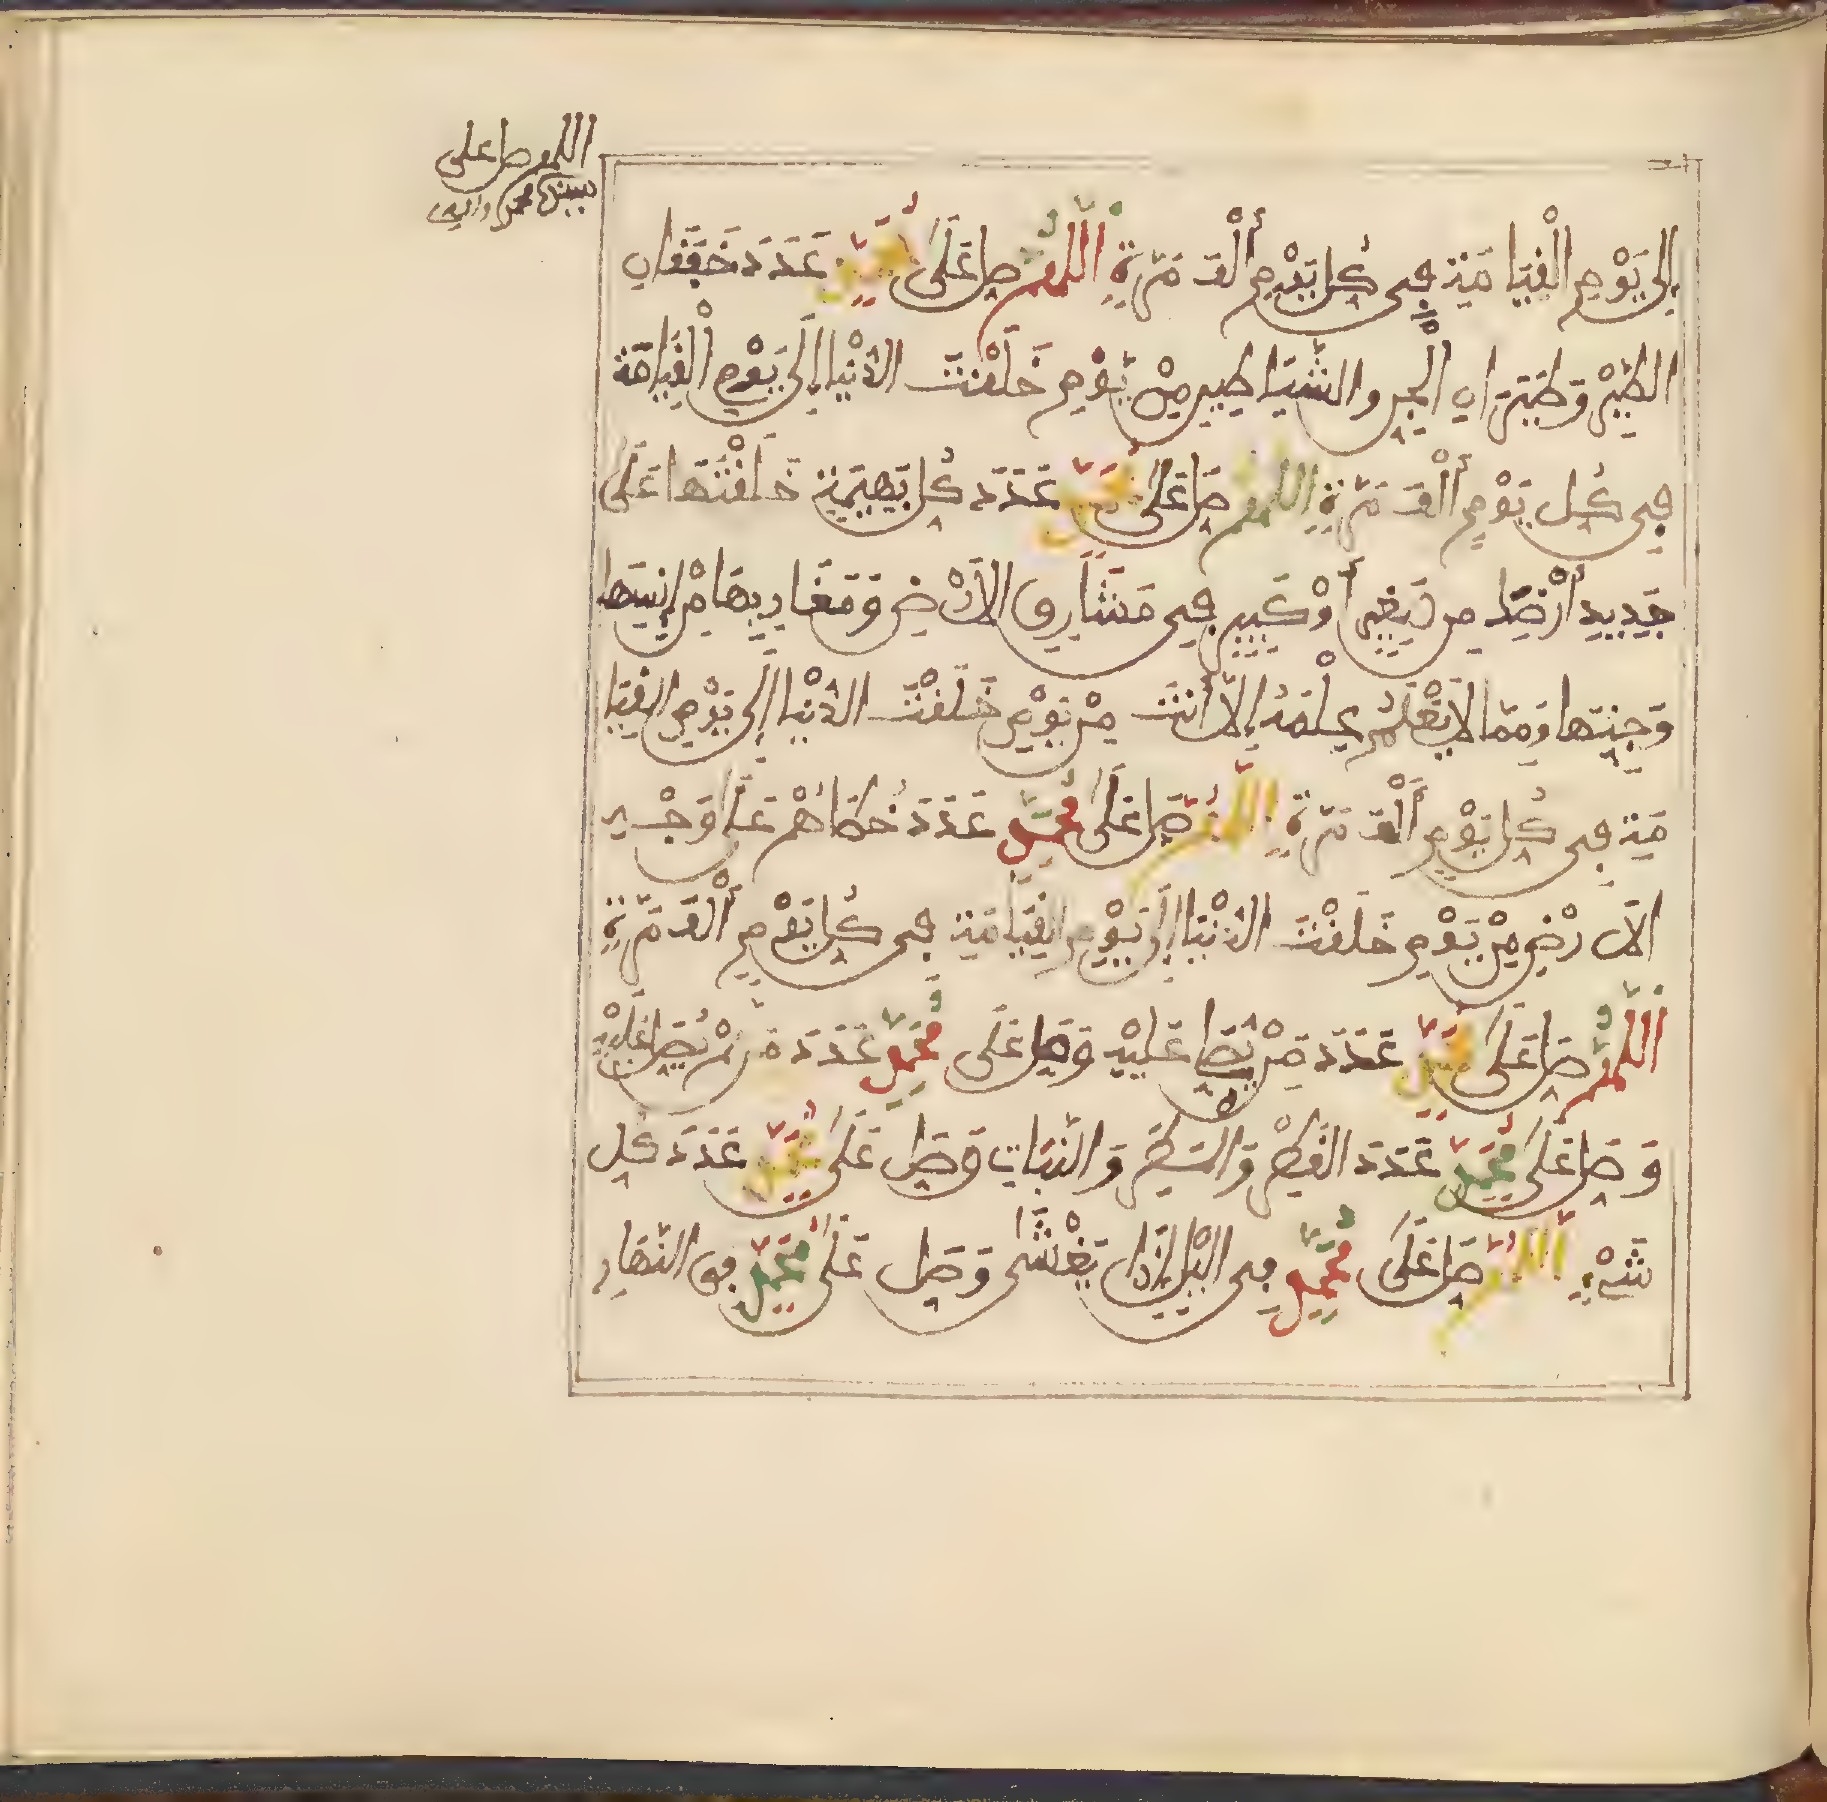 اللهم صل على
سيدنا محمد واله
إِلَى يَوْمِ الْقِيَامَةِ فِي كُلِّ يَوْمٍ أَلْفَ مَرَّةٍ اَللَّهُمَّ صَلِّ عَلَى مُحَمَّدٍ عَدَدَ خَفَقَانِ
الطَّيْرِ وَطَيَرَانِ الْجِنِّ وَالشَّيَاطِينِ مِنْ يَوْمِ خَلَقْتَ الدُّنْيَا إِلَى يَوْمِ الْقِيَامَةِ
فِي كُلِّ يَوْمٍ أَلْفَ مَرَّةٍ اللَّهُمَّ صَلِّ عَلَى مُحَمَّدٍ عَدَدَ كُلِّ بَهِيمَةٍ خَلَقْتَهَا عَلَى
جَدِيدِ أَرْضِكَ مِن صَغِيرٍ أَوْ كَبِيرٍ فِي مَشَارِقِ الْأَرْضِ وَمَغَارِبِهَا مِنْ إِنسِهَا
وَجِنِّهَا وَمِمَّا لَا يَعْلَمُ عِلْمَهُ إِلَّا أَنتَ مِنْ يَوْمِ خَلَقْتَ الدُّنْيَا إِلَى يَوْمِ الْقِيَا
مَةِ فِي كُلِّ يَوْمٍ أَلْفَ مَرَّةٍ اللَّهُمَّ صَلِّ عَلَى مُحَمَّدٍ عَدَدَ خُطَاهُمْ عَلَى وَجْهِ
الْأَرْضِ مِنْ يَوْمِ خَلَقْتَ الدُّنْيَا إِلَى يَوْمِ الْقِيَامَةِ فِي كُلِّ يَوْمٍ أَلْفَ مَرَّةٍ
اَللَّهُمَّ صَلِّ عَلَى مُحَمَّدٍ عَدَدَ مَنْ يُصَلِّي عَلَيْهِ وَصَلِّ عَلَى مُحَمَّدٍ عَدَدَ مَن لَّمْ يُصَلِّ عَلَيْهِ
وَصَلِّ عَلَى مُحَمَّدٍ عَدَدَ الْقَطْرِ وَالْمَطَرِ وَالنَّبَاتِ وَصَلِّ عَلَى مُحَمَّدٍ عَدَدَ كُلِّ
شَيْءٍ اَللَّهُمَّ صَلِّ عَلَى مُحَمَّدٍ فِي الَّيْلِ إِذَا يَغْشَى وَصَلِّ عَلَى مُحَمَّدٍ فِي النَّهَارِ